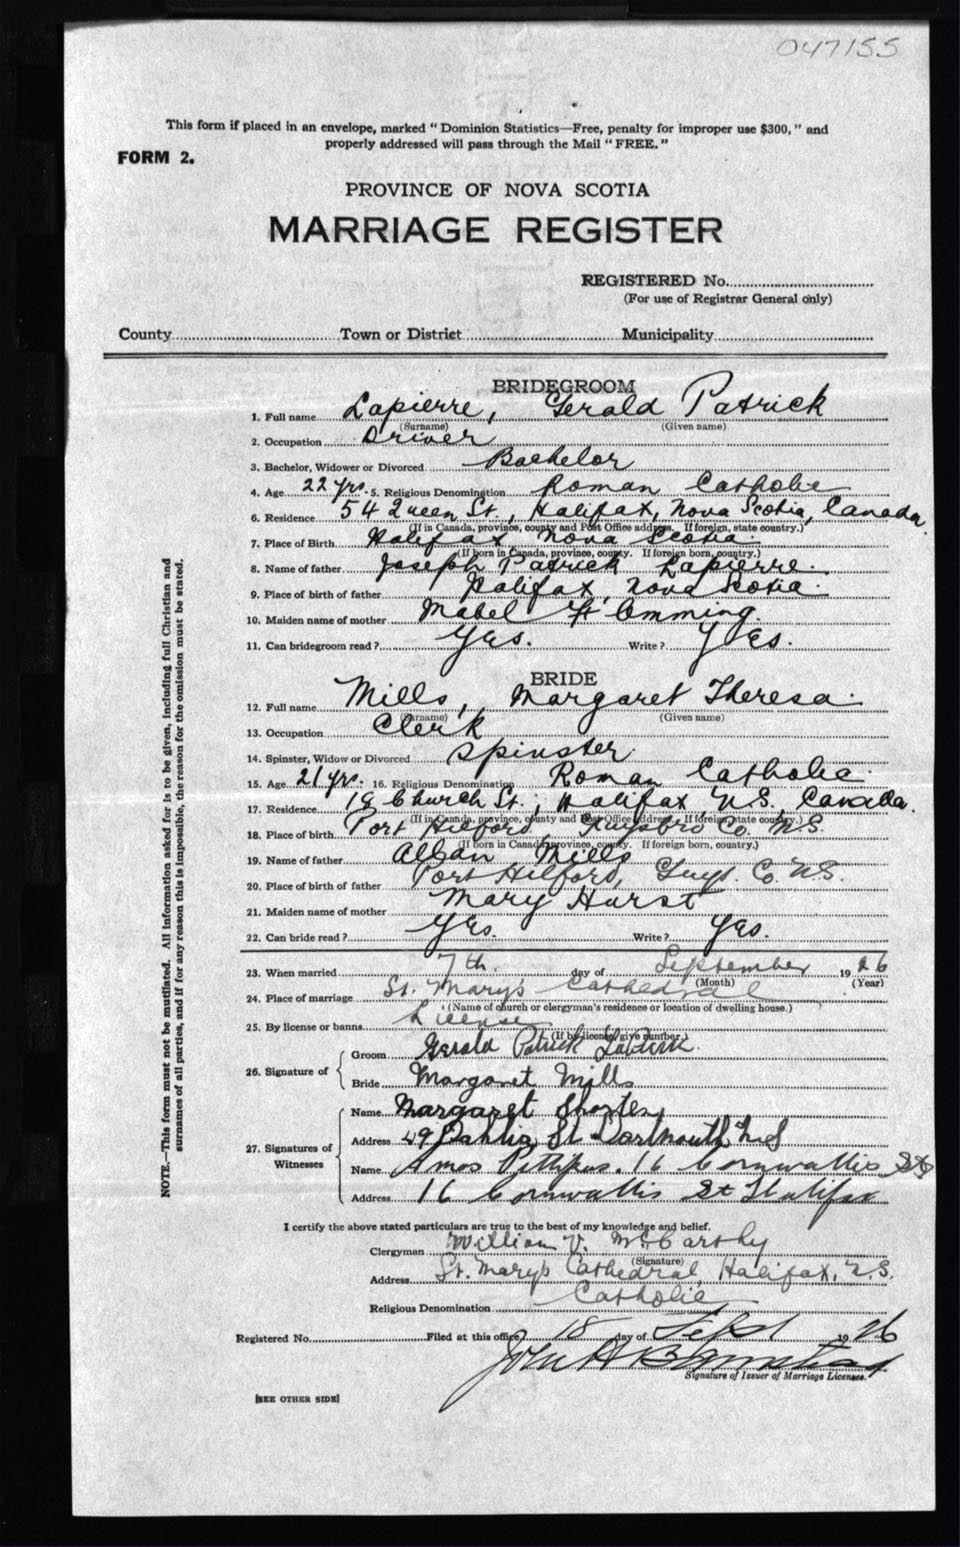 047155
This form if placed in an envelope, marked "Dominion Statistics—Free, penalty for improper use $300," and
properly addressed will pass through the Mail "FREE."
FORM 2.
PROVINCE OF NOVA SCOTIA
MARRIAGE REGISTER
REGISTERED No.
(For use of Registrar General only)
County Town or District Municipality
BRIDEGROOM
1. Full name Lapierre, Gerald Patrick
(Surname) (Given name)
2. Occupation Driver
3. Bachelor, Widower or Divorced Bachelor
4. Age 22 yrs. 5. Religious Denomination Roman Catholic
6. Residence 54 Queen St., Halifax, Nova Scotia, Canada
(If in Canada, province, county and Post Office address. If foreign, state country.)
7. Place of Birth Halifax, Nova Scotia.
(If born in Canada, province, county. If foreign born, country.)
8. Name of father Joseph Patrick Lapierre.
9. Place of birth of father Halifax, Nova Scotia.
10. Maiden name of mother Mabel Flemming.
11. Can bridegroom read? Yes. Write? Yes.
BRIDE
12. Full name Mills, Margaret Theresa.
(Surname) (Given name)
13. Occupation Clerk
14. Spinster, Widow or Divorced Spinster.
15. Age 21 yrs. 16. Religious Denomination Roman Catholic.
17. Residence 18 Church St., Halifax N.S., Canada.
(If in Canada, province, county and Post Office address. If foreign, state country.)
18. Place of birth Port Hilford, Guysbro Co. N.S.
(If born in Canada, province, county. If foreign born, country.)
19. Name of father Alban Mills
20. Place of birth of father Port Hilford, Guys. Co. N.S.
21. Maiden name of mother Mary Hurst
22. Can bride read? Yes. Write? Yes.
23. When married 7th. day of September 1926
(Month) (Year)
24. Place of marriage St. Mary's Cathedral
(Name of church or clergyman's residence or location of dwelling house.)
25. By license or banns License
(If by license, give number.)
26. Signature of
Groom Gerald Patrick
Bride Margaret Mills
27. Signatures of Witnesses
Name Margaret Shorten
Address 49 Dahlia St Dartmouth N.S
Name Amos 16 Cornwallis St
Address 16 Cornwallis St Halifax
I certify the above stated particulars are true to the best of my knowledge and belief.
Clergyman William V. McCarthy
(Signature)
Address St. Mary's Cathedral, Halifax, N.S.
Religious Denomination Catholic
Registered No. Filed at this office 18 day of Sept 1926
John A
Signature of Issuer of Marriage Licenses.
[SEE OTHER SIDE]
NOTE.—This form must not be mutilated. All information asked for is to be given, including full Christian and
surnames of all parties, and if for any reason this is impossible, the reason for the omission must be stated.